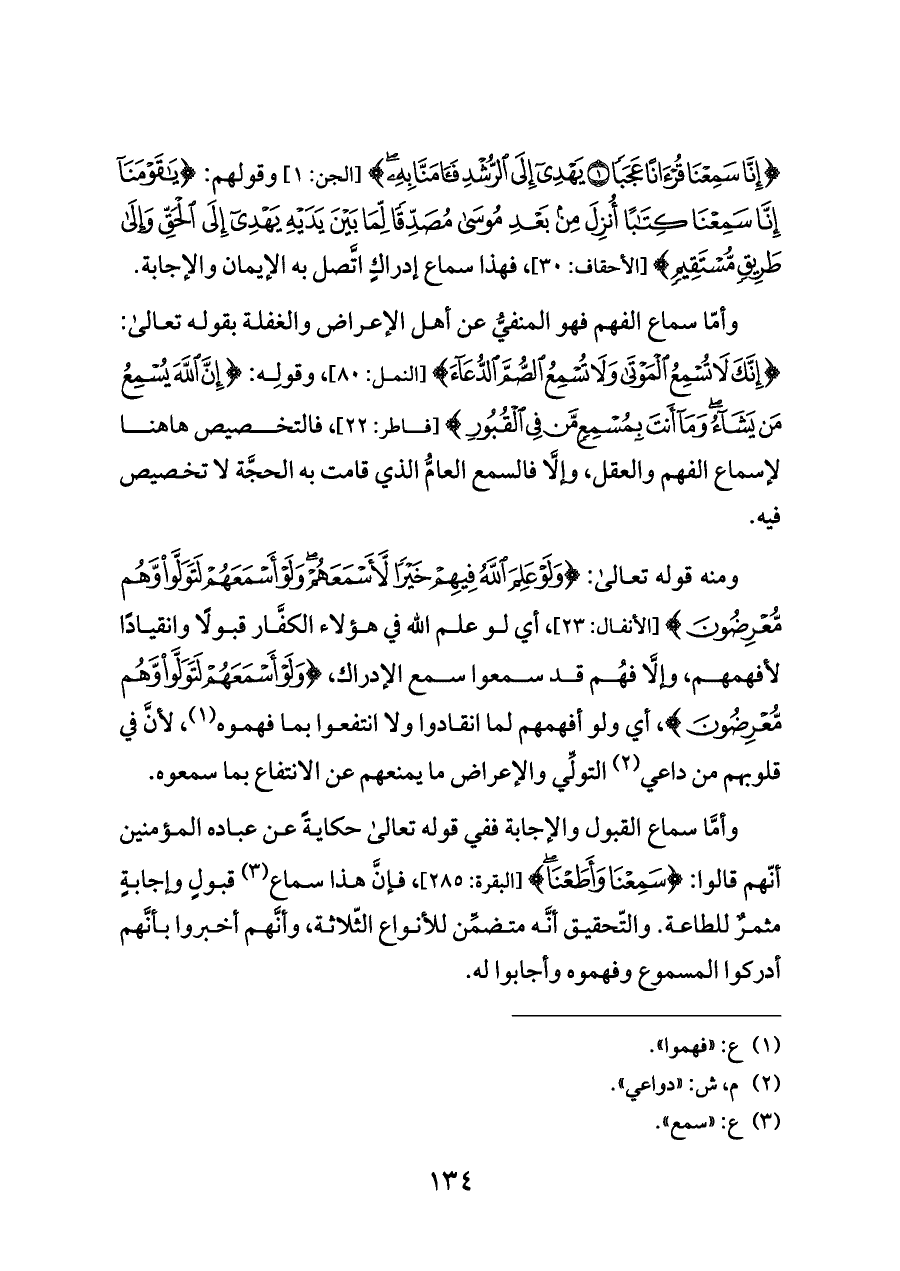 ﴿إِنَّا سَمِعْنَا قُرْءَانًا عَجَبًا ۝١ يَهْدِىٓ إِلَى ٱلرُّشْدِ فَـَٔامَنَّا بِهِۦۖ﴾ [الجن: ١] وقولهم: ﴿يَٰقَوْمَنَآ
إِنَّا سَمِعْنَا كِتَٰبًا أُنزِلَ مِنۢ بَعْدِ مُوسَىٰ مُصَدِّقًا لِّمَا بَيْنَ يَدَيْهِ يَهْدِىٓ إِلَى ٱلْحَقِّ وَإِلَىٰ
طَرِيقٍ مُّسْتَقِيمٍ﴾ [الأحقاف: ٣٠]، فهذا سماع إدراكٍ اتَّصل به الإيمان والإجابة.
وأمّا سماع الفهم فهو المنفيُّ عن أهل الإعراض والغفلة بقوله تعالىٰ:
﴿إِنَّكَ لَا تُسْمِعُ ٱلْمَوْتَىٰ وَلَا تُسْمِعُ ٱلصُّمَّ ٱلدُّعَآءَ﴾ [النمل: ٨٠]، وقولِه: ﴿إِنَّ ٱللَّهَ يُسْمِعُ
مَن يَشَآءُۖ وَمَآ أَنتَ بِمُسْمِعٍ مَّن فِى ٱلْقُبُورِ﴾ [فاطر: ٢٢]، فالتخصيص هاهنا
لإسماع الفهم والعقل، وإلَّا فالسمع العامُّ الذي قامت به الحجَّة لا تخصيص
فيه.
ومنه قوله تعالىٰ: ﴿وَلَوْ عَلِمَ ٱللَّهُ فِيهِمْ خَيْرًا لَّأَسْمَعَهُمْۖ وَلَوْ أَسْمَعَهُمْ لَتَوَلَّوا۟ وَّهُم
مُّعْرِضُونَ﴾ [الأنفال: ٢٣]، أي لو علم الله في هؤلاء الكفَّار قبولًا وانقيادًا
لأفهمهم، وإلَّا فهُم قد سمعوا سمع الإدراك، ﴿وَلَوْ أَسْمَعَهُمْ لَتَوَلَّوا۟ وَّهُم
مُّعْرِضُونَ﴾، أي ولو أفهمهم لما انقادوا ولا انتفعوا بما فهموه(١)، لأنَّ في
قلوبهم من داعي(٢) التولِّي والإعراض ما يمنعهم عن الانتفاع بما سمعوه.
وأمَّا سماع القبول والإجابة ففي قوله تعالىٰ حكايةً عن عباده المؤمنين
أنّهم قالوا: ﴿سَمِعْنَا وَأَطَعْنَاۖ﴾ [البقرة: ٢٨٥]، فإنَّ هذا سماع(٣) قبولٍ وإجابةٍ
مثمرٌ للطاعة. والتّحقيق أنَّه متضمِّن للأنواع الثّلاثة، وأنَّهم أخبروا بأنَّهم
أدركوا المسموع وفهموه وأجابوا له.
(١) ع: «فهموا».
(٢) م، ش: «دواعي».
(٣) ع: «سمع».
١٣٤